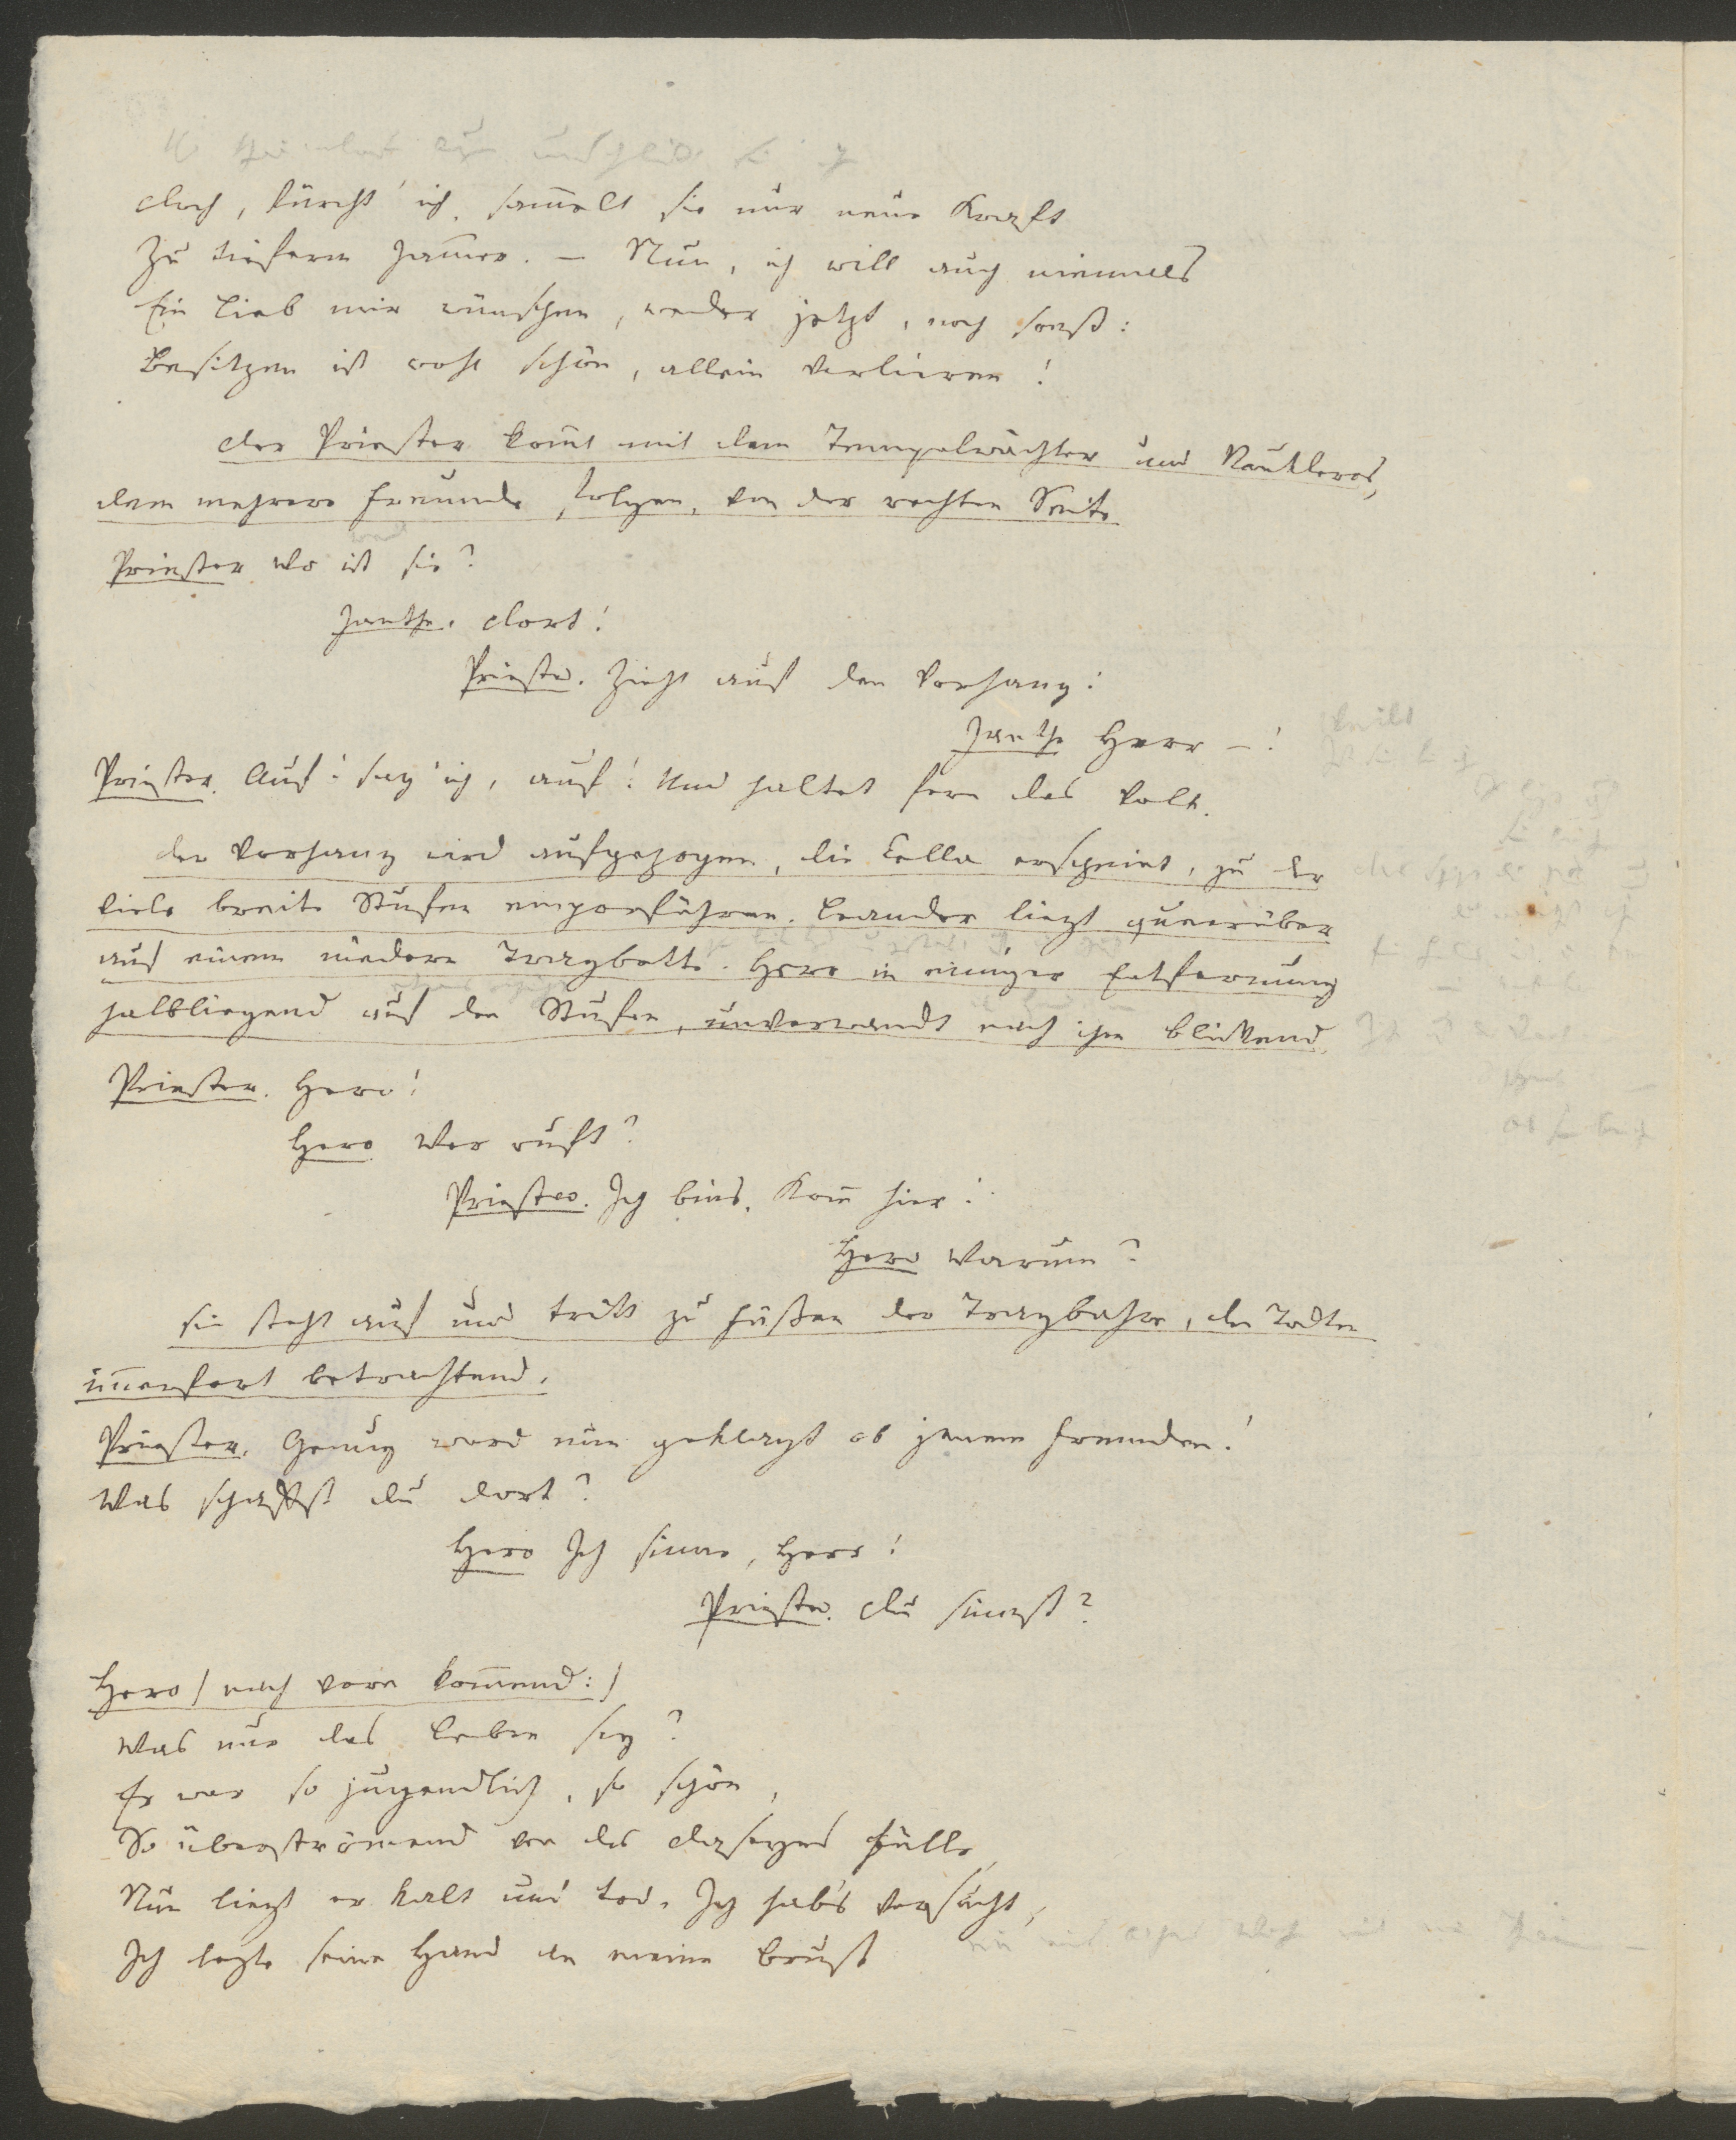 doch, fürcht' ich, sam̄elt sie nur neue Kraft
Zu tieferm Jam̄er. – Nun, ich will auch niemals
Ein Lieb mir wünschen, weder jetzt, noch sonst:
Besitzen ist wohl schön, allein verlieren!
der Priester kom̄t mit dem Tempelwächter und Naukleros,
dem mehrere Freunde folgen, von der rechten Seite.
Priester Wo ist sie?
Janthe. dort!
Priester. Zieht auf den Vorhang!
Janthe Herr –!
Priester. Auf! sag' ich, auf! Und haltet fern das Volk.
der Vorhang wird aufgezogen, die Cella erscheint, zu der
viele breite Stufen emporführen. Leander liegt querüber
auf einem niedern Tragbette. Hero in einiger Entfernung
halbliegend auf den Stufen, unverwandt nach ihm blickend.
Priester. Hero!
Hero Wer ruft?
Priester. Ich bins. Kom̄ hier!
Hero Warum?
sie steht auf und tritt zu Füßen der Tragbahre, den Todten
im̄erfort betrachtend.
Priester. Genug ward nun geklagt ob jenem Fremden!
Was schaffst du dort?
Hero Ich sinne, Herr!
Priester. du sinnst?
Hero (nach vorn kom̄end:)
Was nur das Leben sey?
Er war so jugendlich, so schön,
So überströmend von des daseyns Fülle,
Nun liegt er kalt und tod. Ich hab's versucht,
Ich legte seine Hand an meine Brust